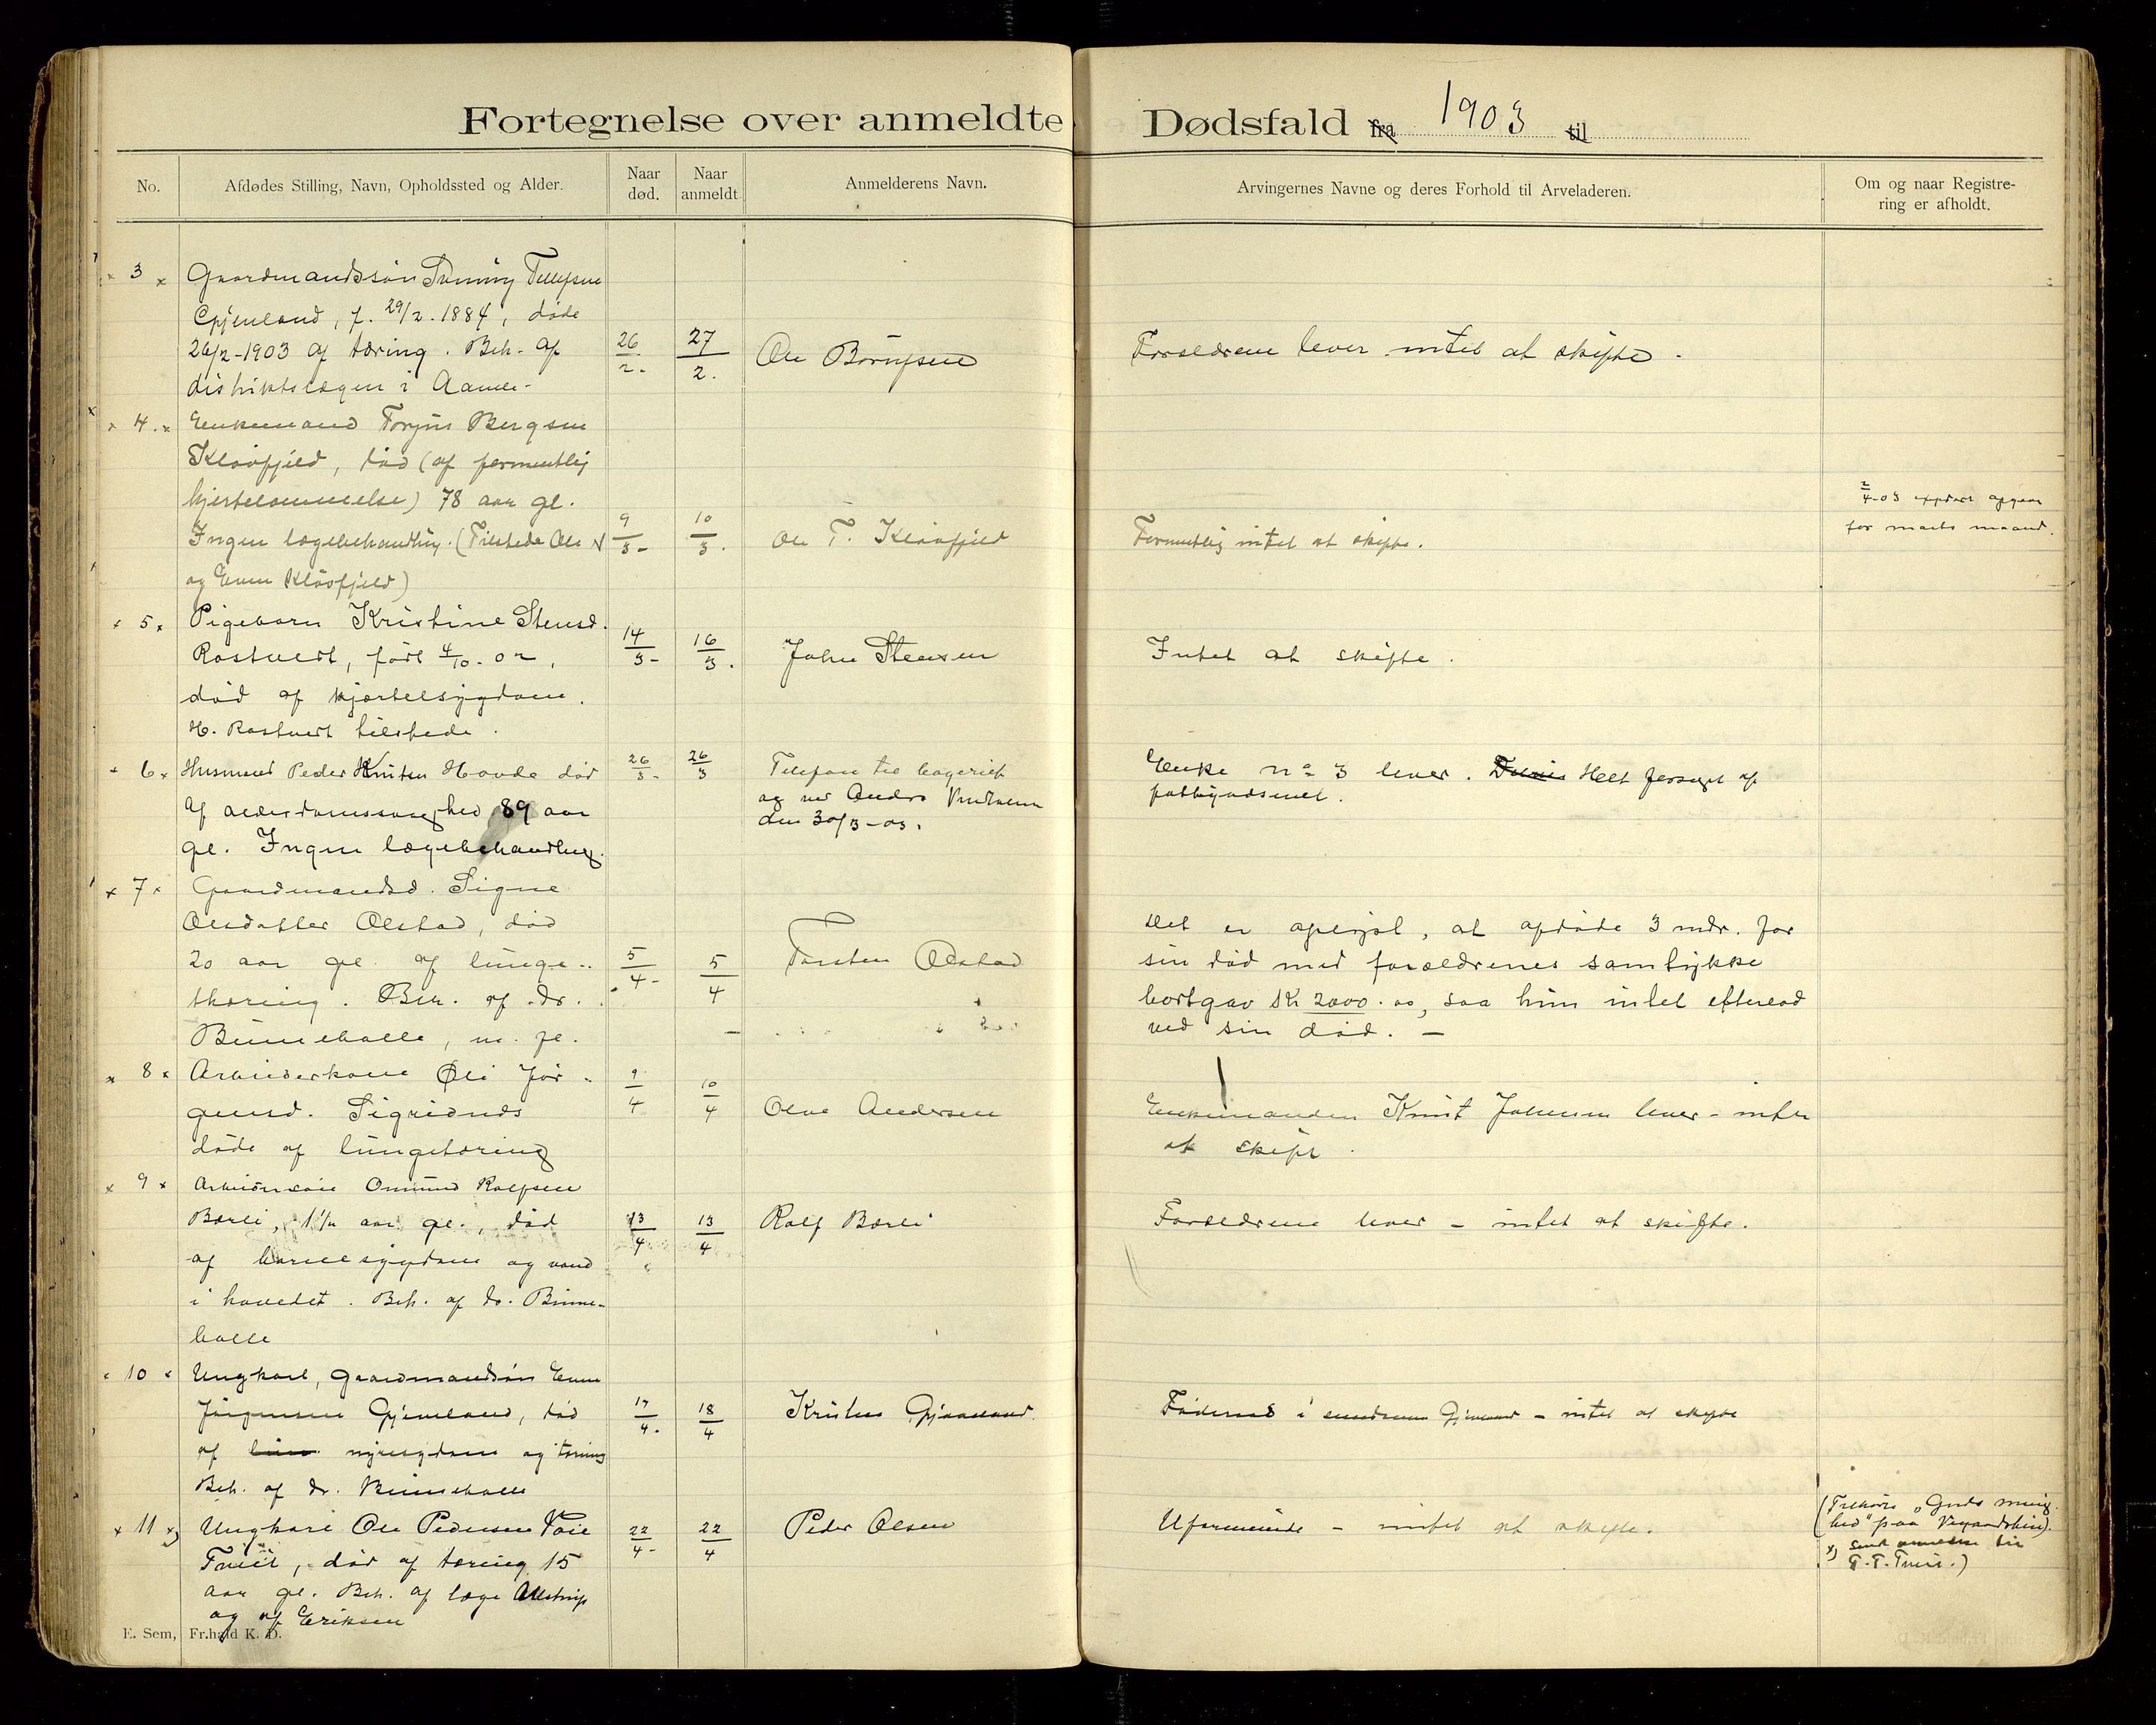 Fortegnelse over anmeldte Dødsfald fra 1903 til
No.
Afdødes Stilling, Navn, Opholdssted og Alder.
Naar død.
Naar anmeldt.
Anmelderens Navn.
Arvingernes Navne og deres Forhold til Arveladeren.
Om og naar Registre-
ring er afholdt.
3 Gaardmandssøn Tellefsen
Gjenland, f. 29/2. 1884, døde
26/2-1903 af tæring. Beh. af
distriktslægen i Aamli-
26/2. 27/2.
Ole Børufsen
Forældrene lever intet at skifte.
4. Enkemand Torjus Bergsen
Kløvfjeld, død (af formentlig
hjertelammelse) 78 aar gl.
Ingen lægebehandling. (Tilstede Ole
og Even Kløvfjeld)
9/3- 10/3.
Ole T. Kløvfjeld
Formentlig intet at skifte.
2/4-03 opgave
for marts maaned.
5 Pigebarn Kristine Stensd.
Rostveit, født 4/10-02,
død af kjertelsygdom.
H. Rostveit tilstede.
14/3- 16/3.
John Stensen
Intet at skifte.
6 Husmand Peder Knutsen Hovde død
af alderdomssvaghed 89 aar
gl. Ingen lægebehandling.
26/3- 26/3
Telefon til
og ved Anders
den 30/3-03.
Enke no 3 lever. Helt forsørget af
fattigvæsenet.
7 Gaardmandsd. Signe
Olsdatter Ølstad, død
20 aar gl. af lunge-
thæring. Beh. af dr.
Binneballe, m. fl.
5/4- 5/4
Torsten Ølstad
Det er oplyst, at afdøde 3 mdr. før
sin død med forældrenes samtykke
bortgav Kr 2000.00, saa hun intet efterlod
ved sin død. -
8 Arbeiderkone Øli Jør-
gensd. Sigridnes
døde af lungetæring
9/4 10/4
Olva Andersen
Enkemanden Knut Johnsen lever - intet
at skifte.
9 Arbeidersøn Omund Rolfsen
Børli, 1½ aar gl., død
af barnesygdom og vand
i hovedet. Beh. af dr. Binne-
balle
13/4 13/4
Rolf Børli
Forældrene lever - intet at skifte.
10 Ungkarl, gaardmandsøn Even
Jørgensen Gjenland, død
af nyresygdom og tæring
Beh. af dr. Binneballe
17/4. 18/4
Kristen Gjaasland
i Gjenland - intet at skifte
11 Ungkarl Ole Pedersen
død af tæring 15
aar gl. Beh. af læge
og af Eriksen
22/4- 22/4
Peder Olsen
Uformuende - intet at skifte.
hed" paa
T. T.
E. Sem, Fr.hald K. D.